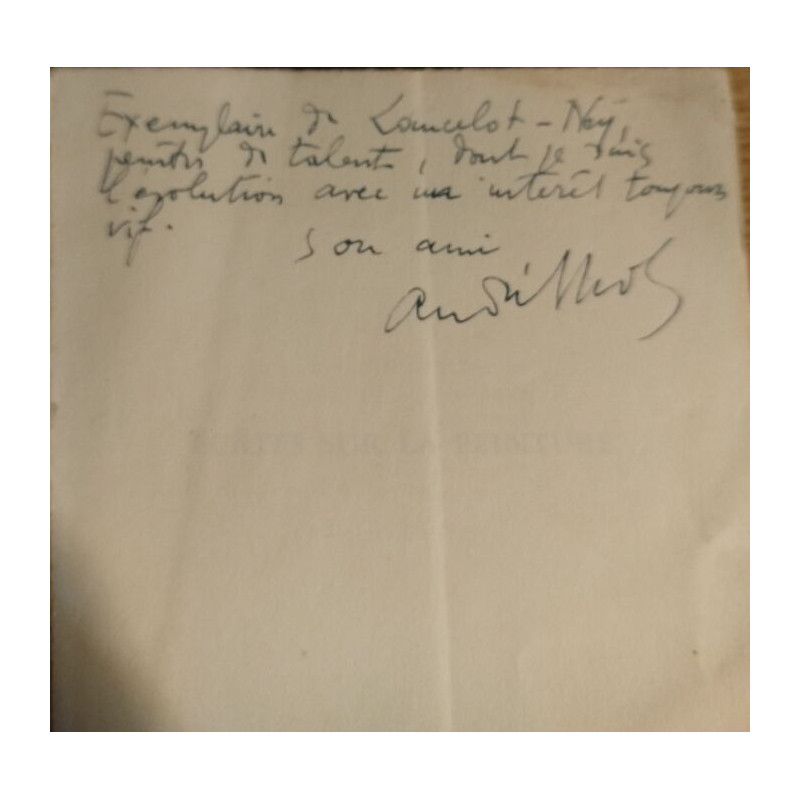 Exemplaire de Lancelot-Ney,
peintre de talent, dont je suis
l'évolution avec un intérêt toujours
vif.
son ami
André Lhote
ÉCRITS SUR LA PEINTURE